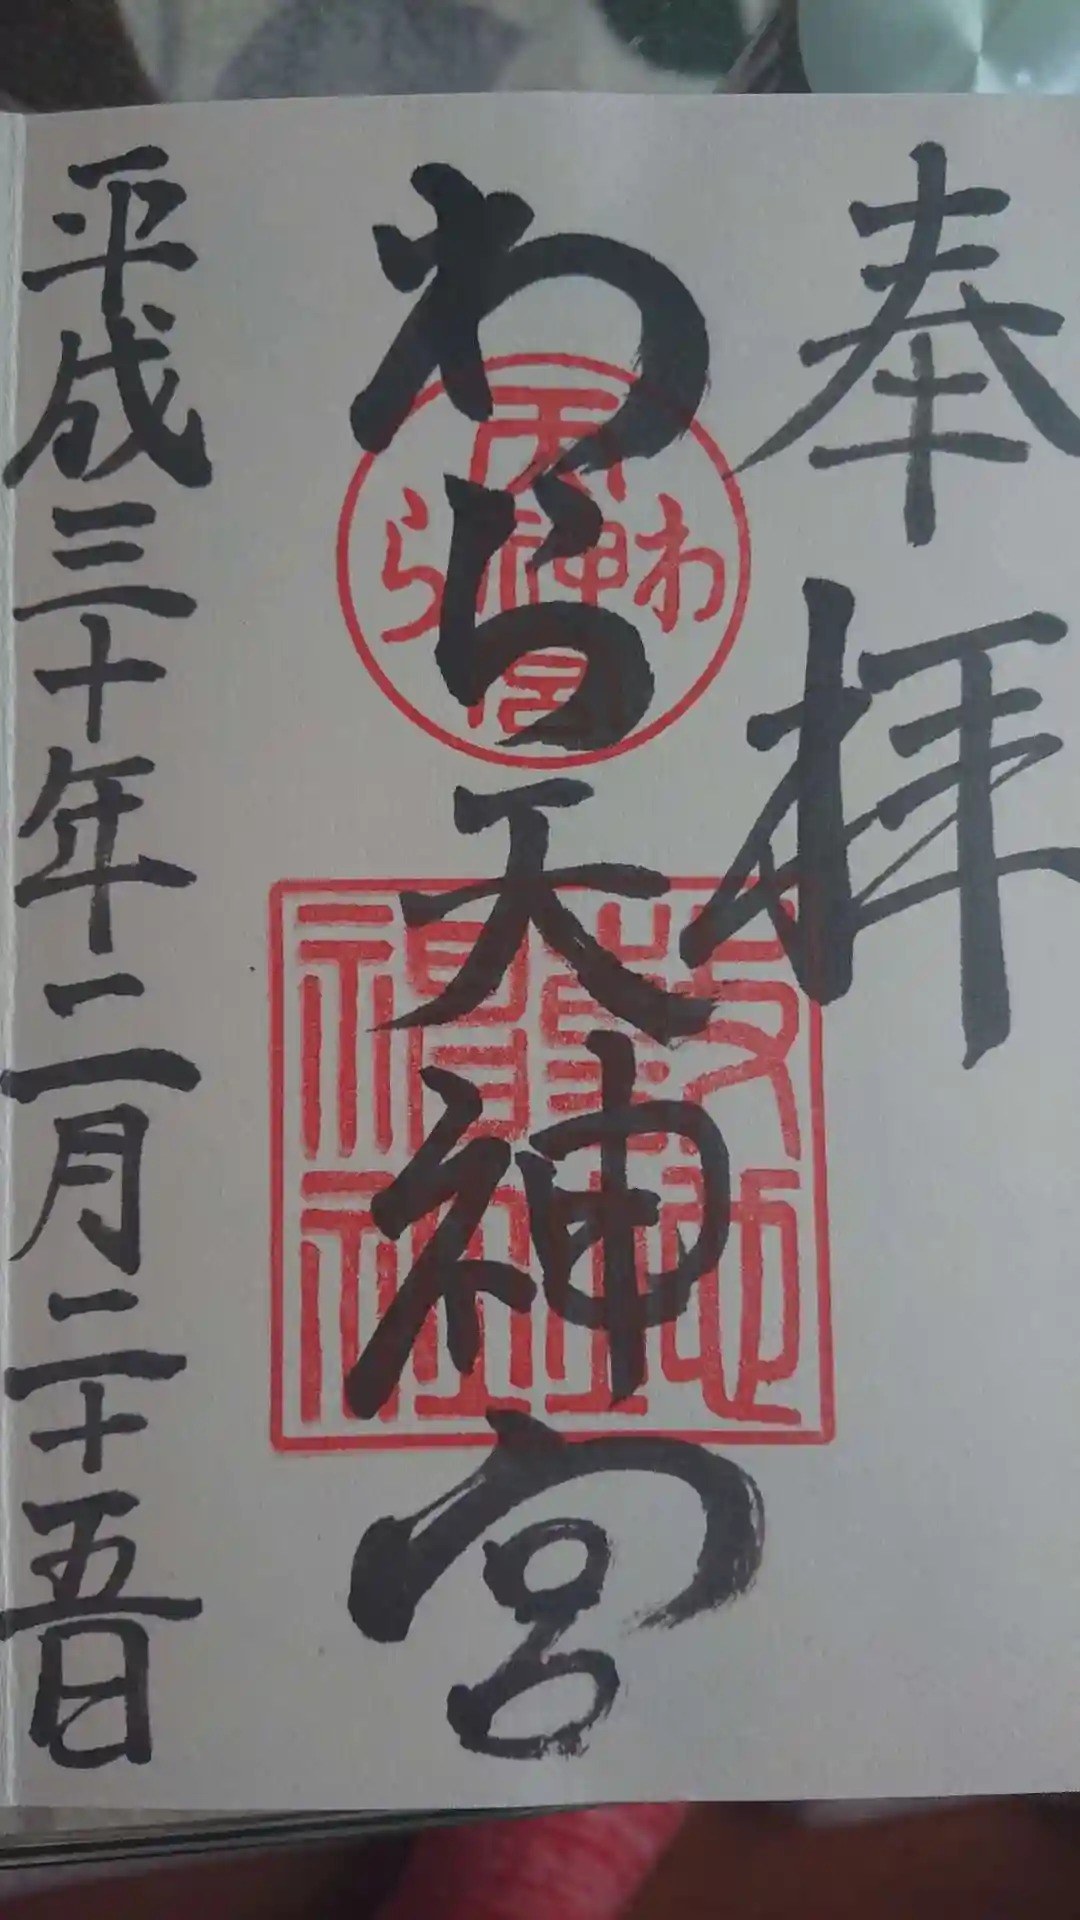 奉拝
わら天神宮
わら天神宮
敷地神社
平成三十年二月二十五日